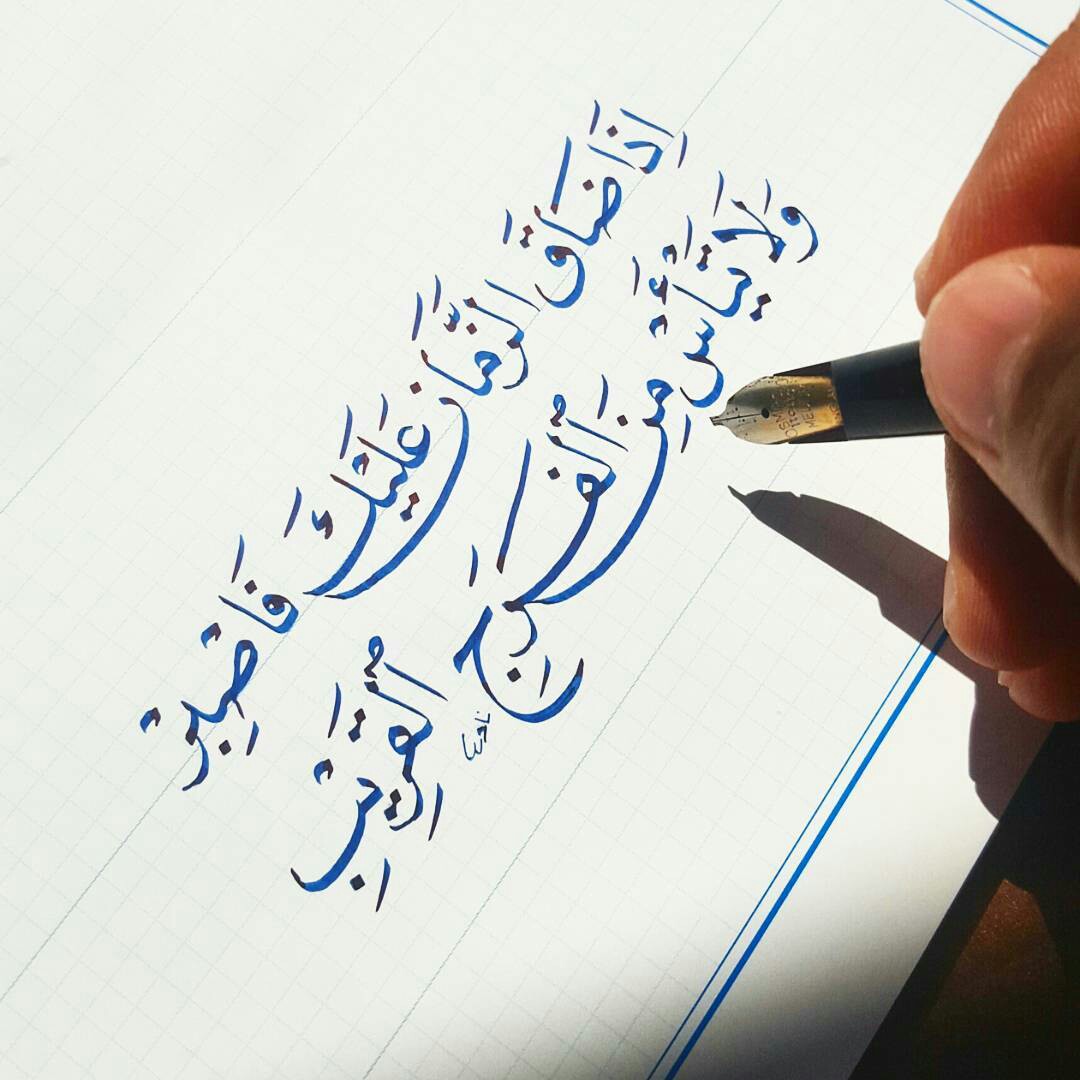 إِذَا ضَاقَ الزَّمَانُ عَلَيْكَ فَاصْبِرْ
وَلَا تَيْأَسْ مِنَ ٱلْفَرَجِ ٱلْقَرِيبِ